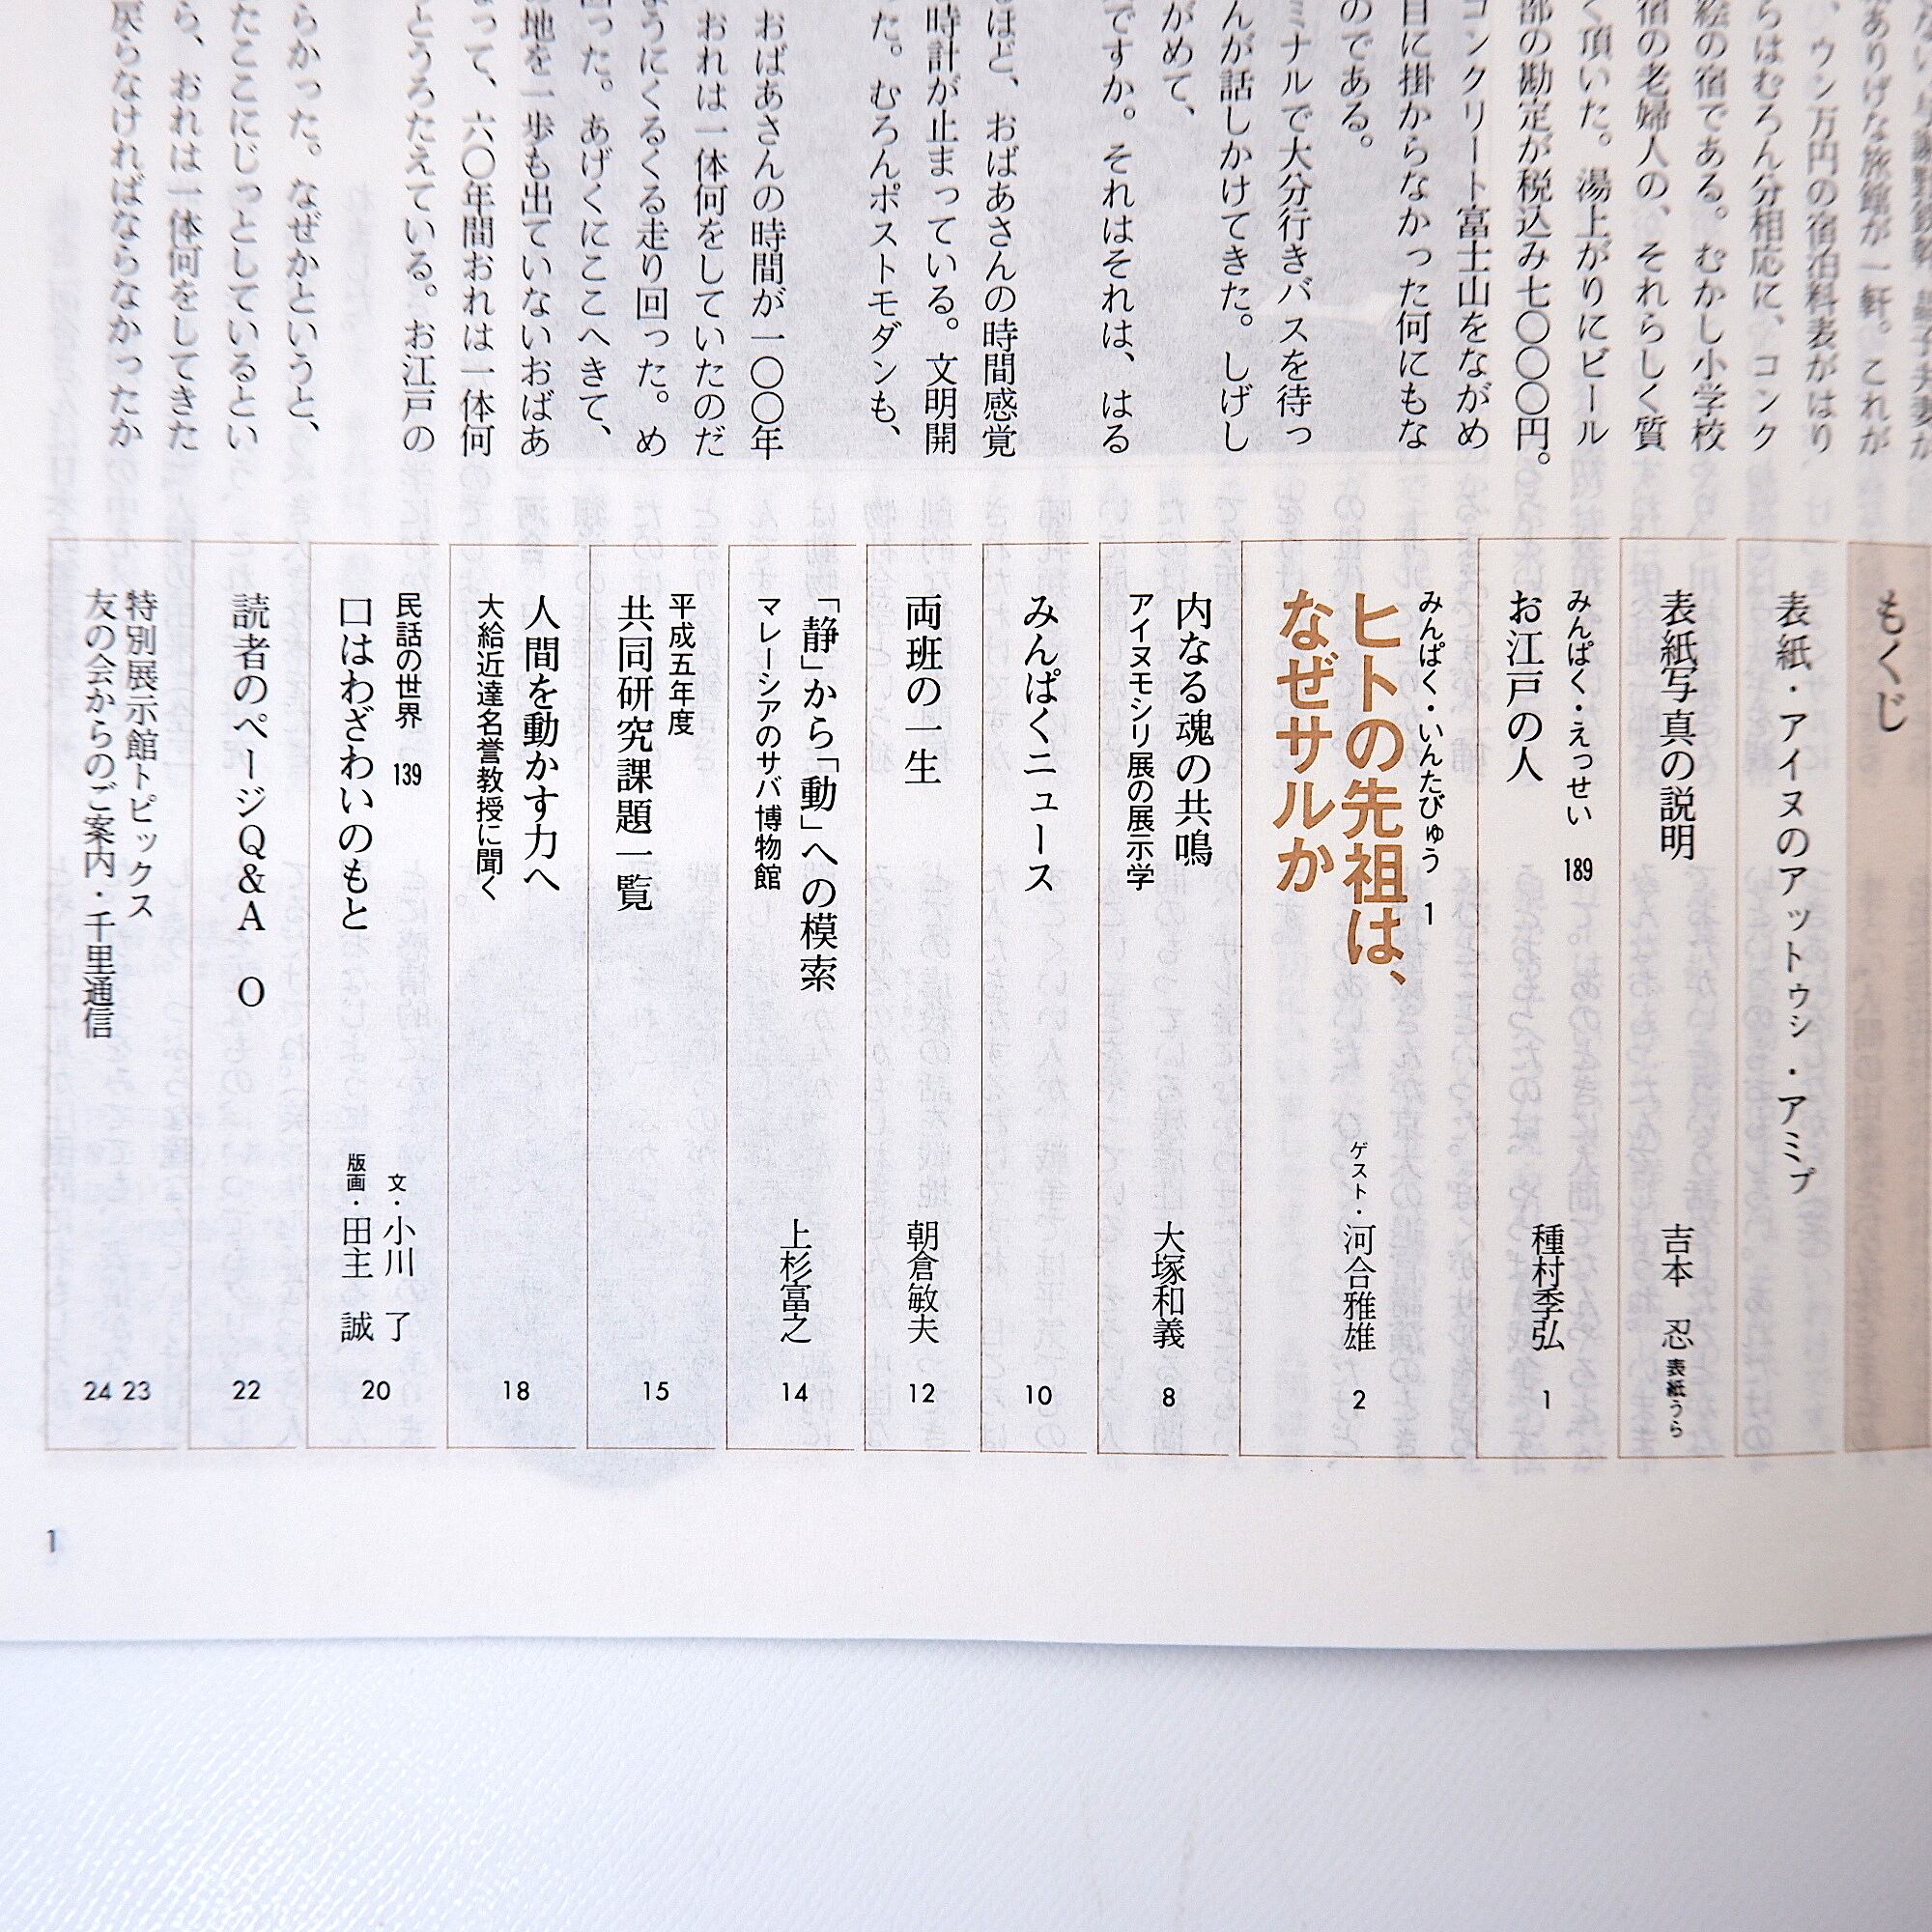 ありげな旅館が一軒。これが
、ウン万円の宿泊料表がはり
らはむろん分相応に、コンク
絵の宿である。むかし小学校
宿の老婦人の、それらしく質
く頂いた。湯上がりにビール
部の勘定が税込み七〇〇〇円。
コンクリート富士山をながめ
目に掛からなかった何にもな
のである。
ミナルで大分行きバスを待っ
んが話しかけてきた。しげし
がめて、
ですか。それはそれは、はる
ほど、おばあさんの時間感覚
時計が止まっている。文明開
た。むろんポストモダンも、
おばあさんの時間が一〇〇年
おれは一体何をしていたのだ
ようにくるくる走り回った。め
回った。あげくにここへきて、
地を一歩も出ていないおばあ
って、六〇年間おれは一体何
とうろたえている。お江戸の
らかった。なぜかというと、
たここにじっとしているとい
ら、おれは一体何をしてきた
戻らなければならなかったか
もくじ
表紙・アイヌのアットゥシ・アミプ
表紙写真の説明 吉本 忍 表紙うら
みんぱく・えっせい 189
お江戸の人 種村季弘 1
みんぱく・いんたびゅう 1
ヒトの先祖は、
なぜサルか
ゲスト・河合雅雄 2
内なる魂の共鳴
アイヌモシリ展の展示学
大塚和義 8
みんぱくニュース 10
両班の一生 朝倉敏夫 12
「静」から「動」への模索
マレーシアのサバ博物館
上杉富之 14
平成五年度
共同研究課題一覧 15
人間を動かす力へ
大給近達名誉教授に聞く 18
民話の世界 139
口はわざわいのもと
文・小川 了
版画・田主 誠
20
読者のページQ&A O 22
特別展示館トピックス 23
友の会からのご案内・千里通信 24
1